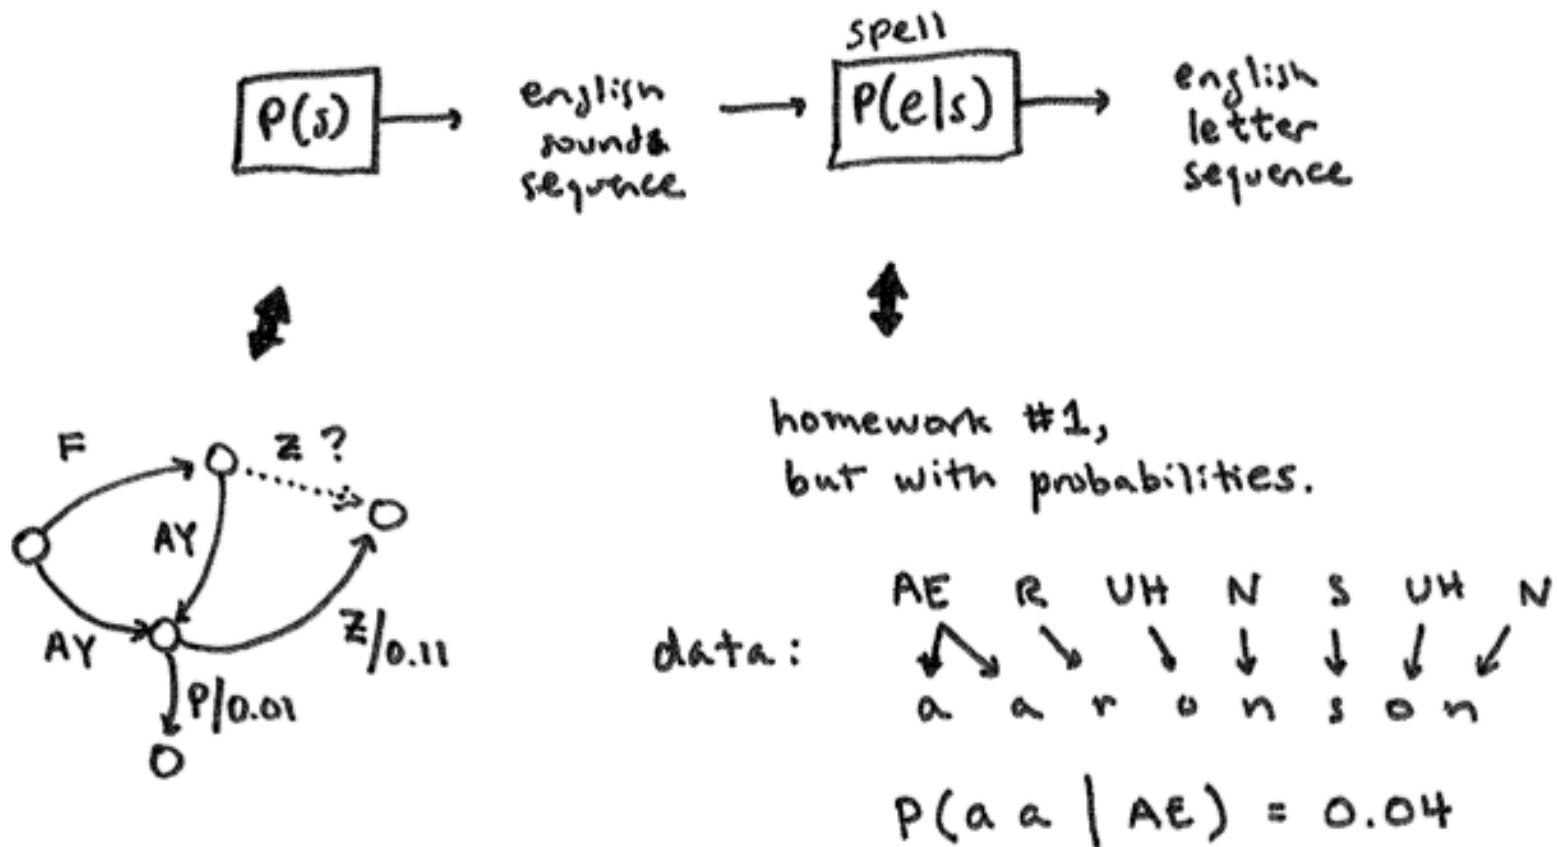 spell
P(s)
english
sounds
sequence
P(e|s)
english
letter
sequence
F
Z ?
AY
AY
Z/0.11
P/0.01
homework #1,
but with probabilities.
data:
AE R UH N S UH N
a a r o n s o n
P(a a | AE) = 0.04